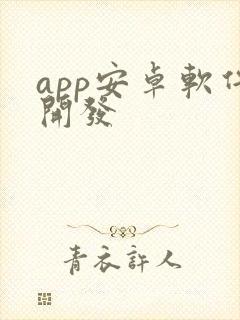 app安卓軟件
開發
青衣許人